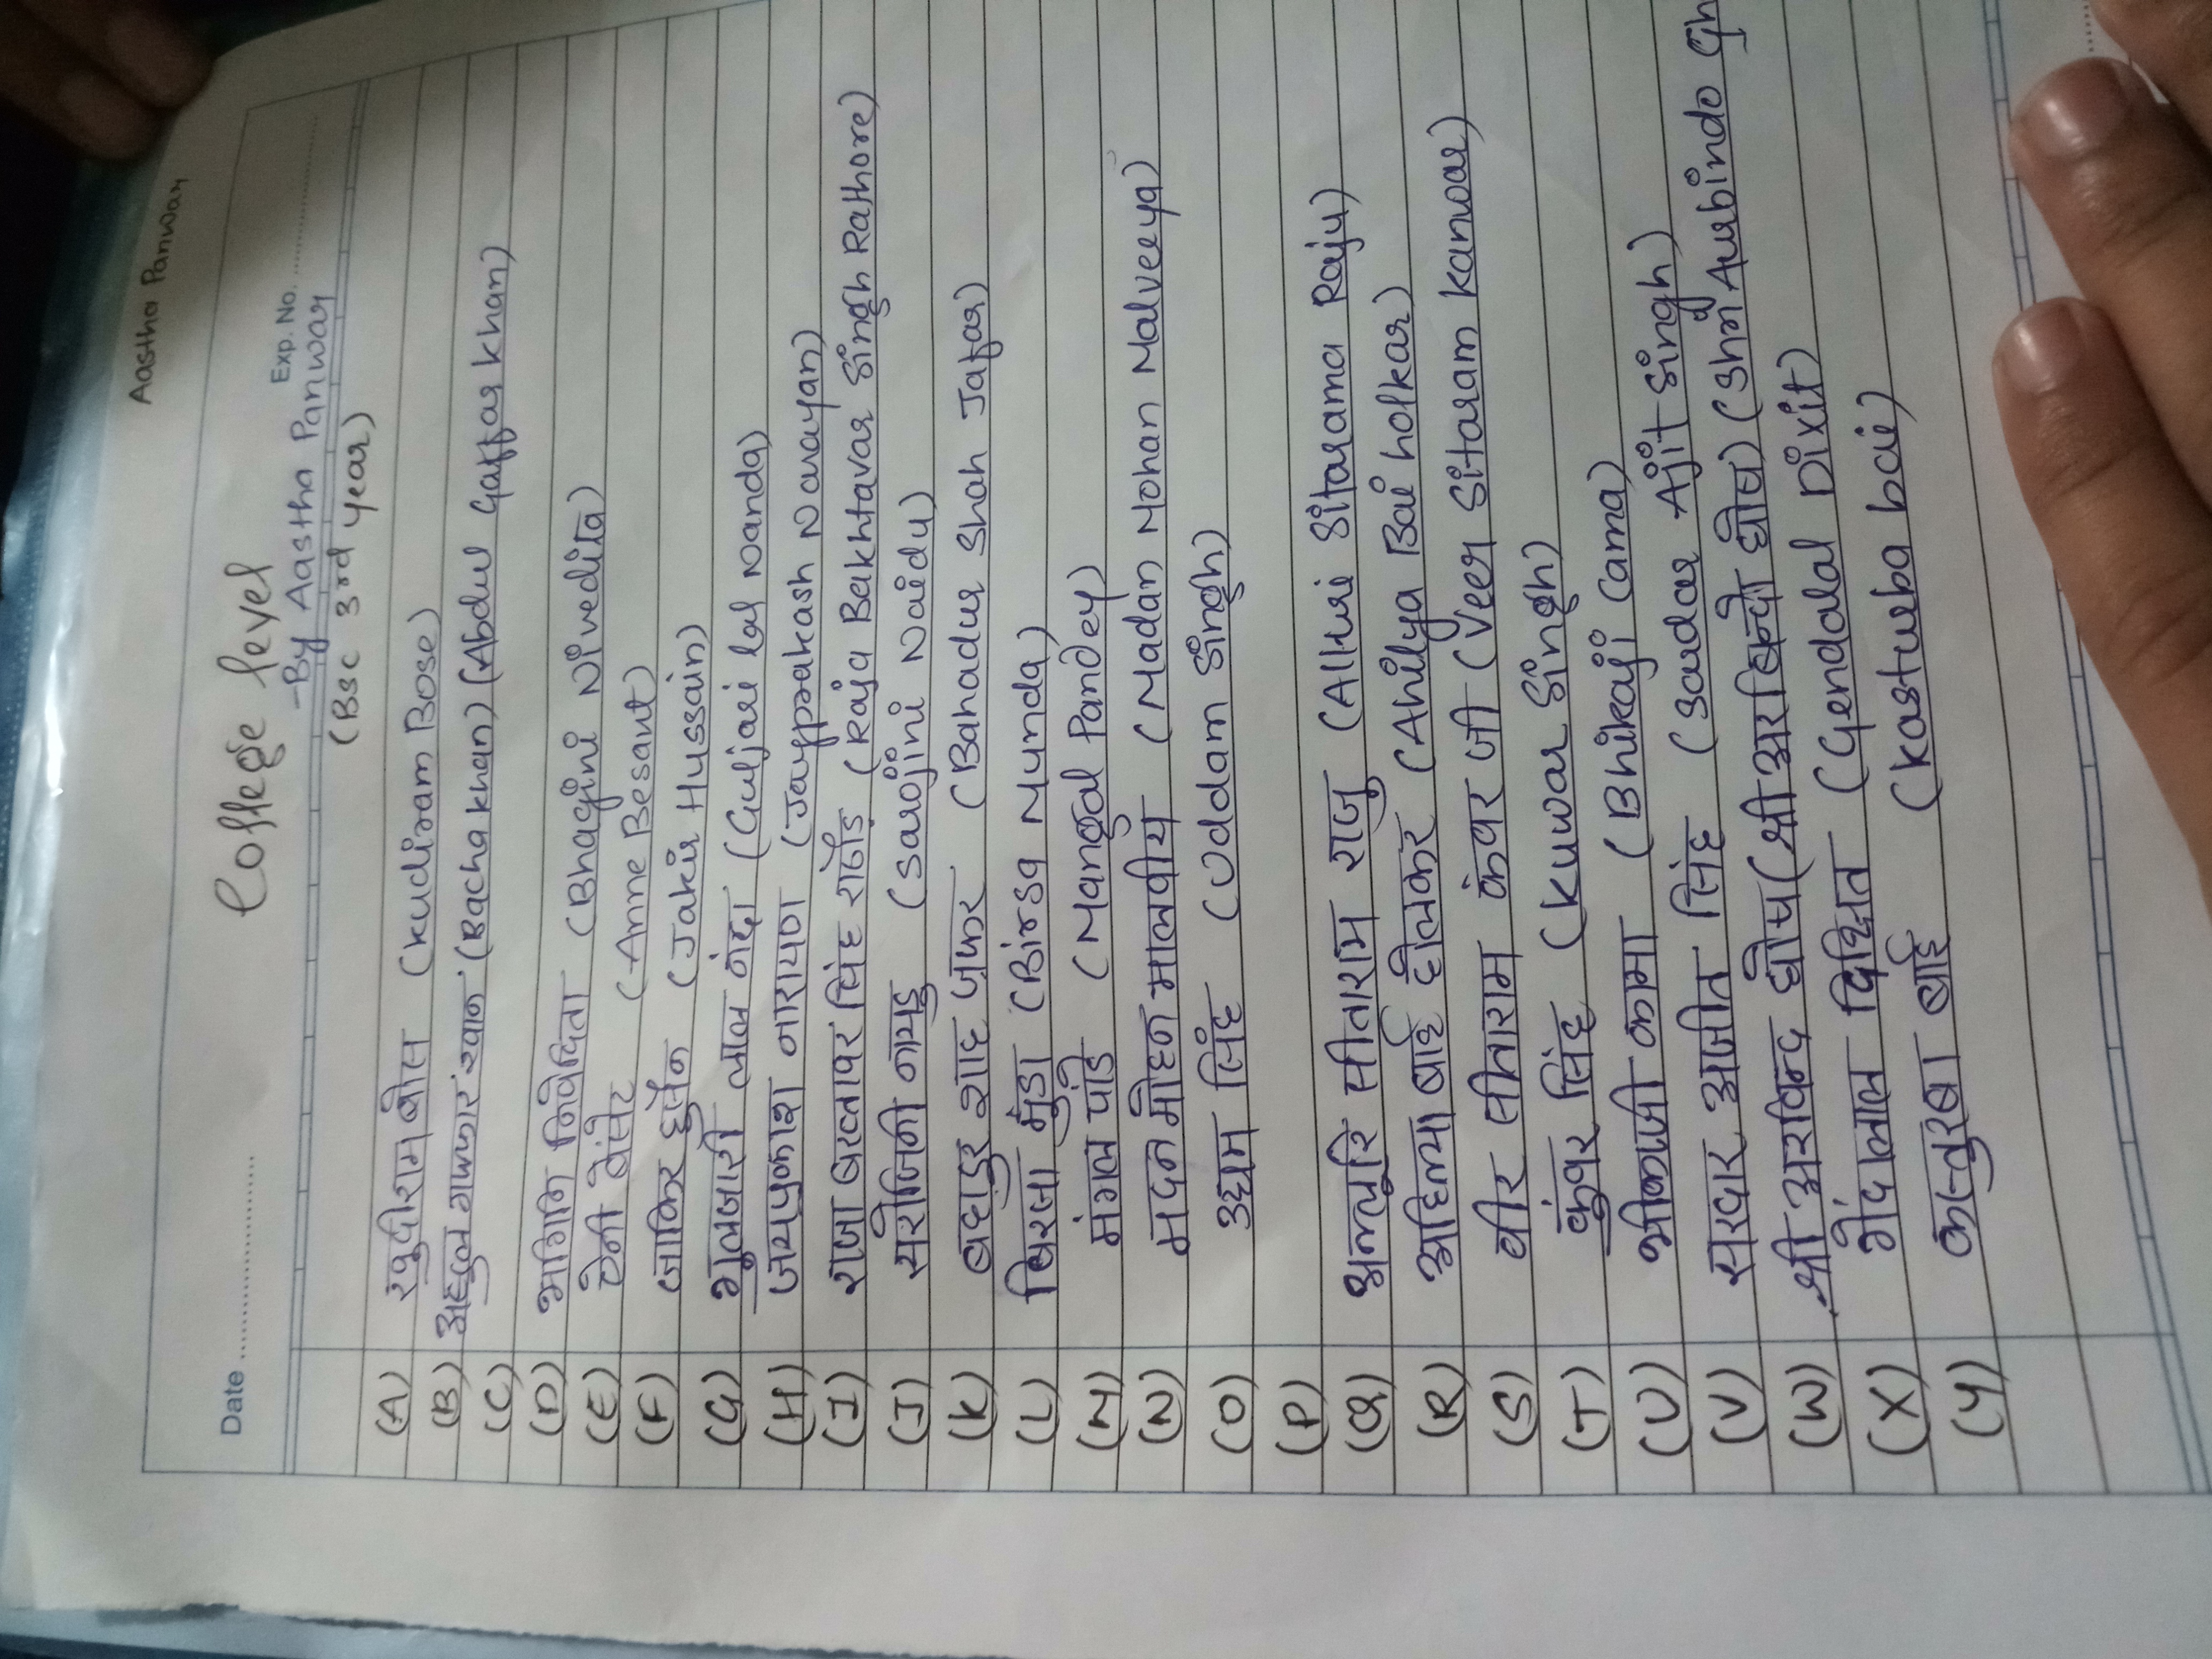 Aastha Panwar
College level
Date ............ Exp. No. ............
-By Aastha Panwar
(Bsc 3rd year)
(A) खुदीराम बोस (kudiram Bose)
(B) अब्दुल गफ्फार खान (Bacha khan) (Abdul Gaffar khan)
(C)
(D) भागिनि निवेदिता (Bhagini Nivedita)
(E) ऐनी बेसेंट (Anne Besant)
(F) जाकिर हुसैन (Jakir Hussain)
(G) गुलजारी लाल नंदा (Guljari lal Nanda)
(H) जयप्रकाश नारायण (Jayprakash Narayan)
(I) राजा बख्तावर सिंह राठौड़ (Raja Bakhtavar Singh Rathore)
(J) सरोजिनी नायडु (Sarojini Naidu)
(K) बहादुर शाह ज़फर (Bahadur Shah Jafar)
(L) बिरसा मुंडा (Birsa Munda)
(M) मंगल पांडे (Mangal Pandey)
(N) मदन मोहन मालवीय (Madan Mohan Malveeya)
(O) उद्यम सिंह (Uddam Singh)
(P)
(Q) अल्लूरि सीताराम राजु (Alluri Sitarama Raju)
(R) अहिल्या बाई होलकर (Ahilya Bai holkar)
(S) वीर सीताराम कंवर जी (Veer Sitaram kanwar)
(T) कुंवर सिंह (Kuwar Singh)
(U) भीकाजी कामा (Bhikaji Cama)
(V) सरदार अजीत सिंह (Sardar Ajit Singh)
(W) श्री अरविन्द घोष (श्री अरबिन्दो घोष) (Shri Aurbindo Gh
(X) गेंदालाल दिक्षित (Gendalal Dixit)
(Y) कस्तुरबा बाई (kasturba bai)